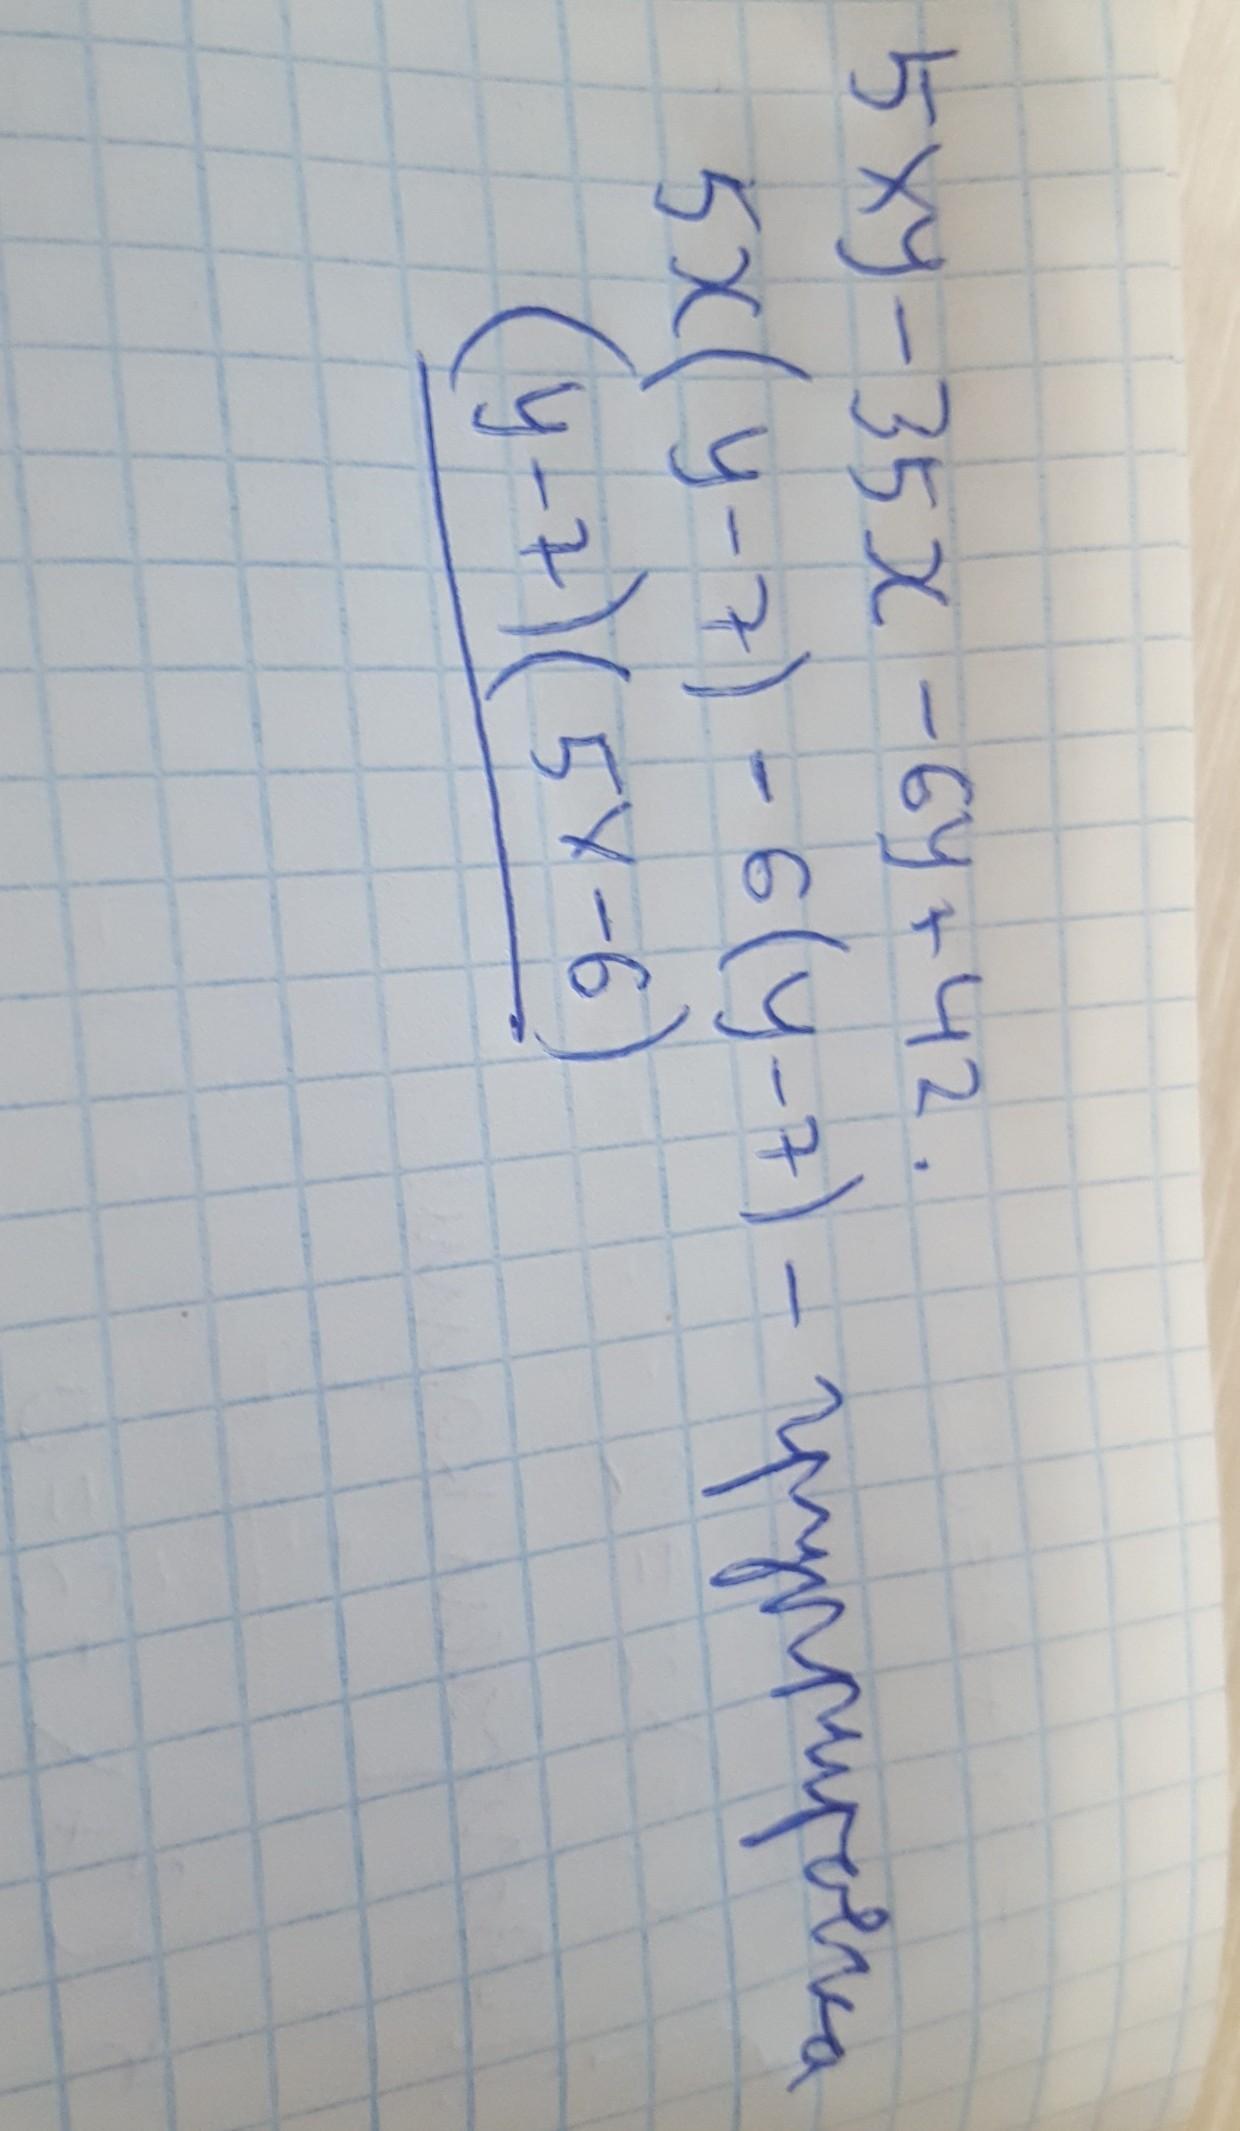 5xy - 35x - 6y + 42.
5x(y - 7) - 6(y - 7) - группировка
(y - 7)(5x - 6)